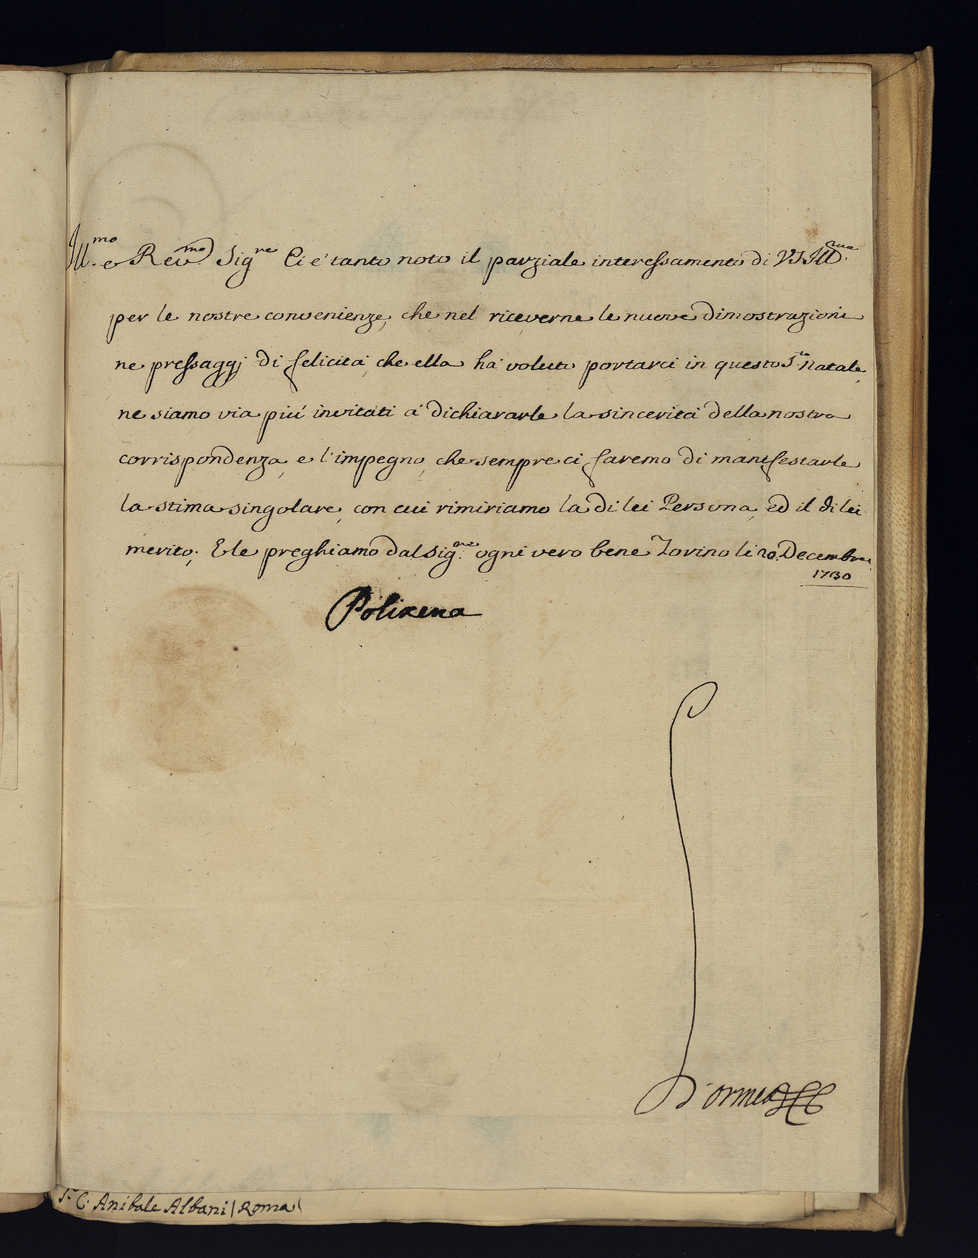 Ill.mo e Rev.mo Sig.re Ci e' tanto noto il parziale interessamento di VS Ill.ma
per le nostre convenienze, che nel riceverne le nuove dimostrazioni
ne pressaggj di felicità, che ella hà voluto portarci in questo S.to Natale,
ne siamo via più invitati à dichiararle la sincerità della nostra
corrispondenza, e l'impegno, che sempre ci faremo di manifestarle
la stima singolare, con cui rimiriamo la di lei Persona, ed il di lei
merito; E le preghiamo dal Sig.re ogni vero bene Torino li 20. Decembre
1730
Polixena
D'ormea
S.r C. Anibale Albani (Roma)